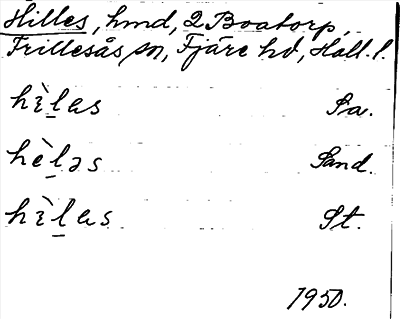 Hilles, hmd, 2 Boatorp,
Frillesås sn, Fjäre hd, Hall. l.
hɪ̀l̲ɐs Sa.
hèl̲əs Sand.
hɪ̀l̲ɐs St.
1950.